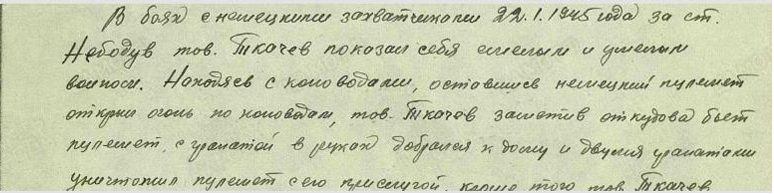 В боях с немецкими захватчиками 22.1.1945 года за ст.
Небодув тов. Ткачев показал себя смелым и умелым
воином. Находясь с коноводами, оставшись немецкий пулемет
открыл огонь по коноводам, тов. Ткачев заметив откудова бьет
пулемет, с гранатой в руках добрался к дому и двумя гранатами
уничтожил пулемет с его прислугой, кроме того тов. Ткачев